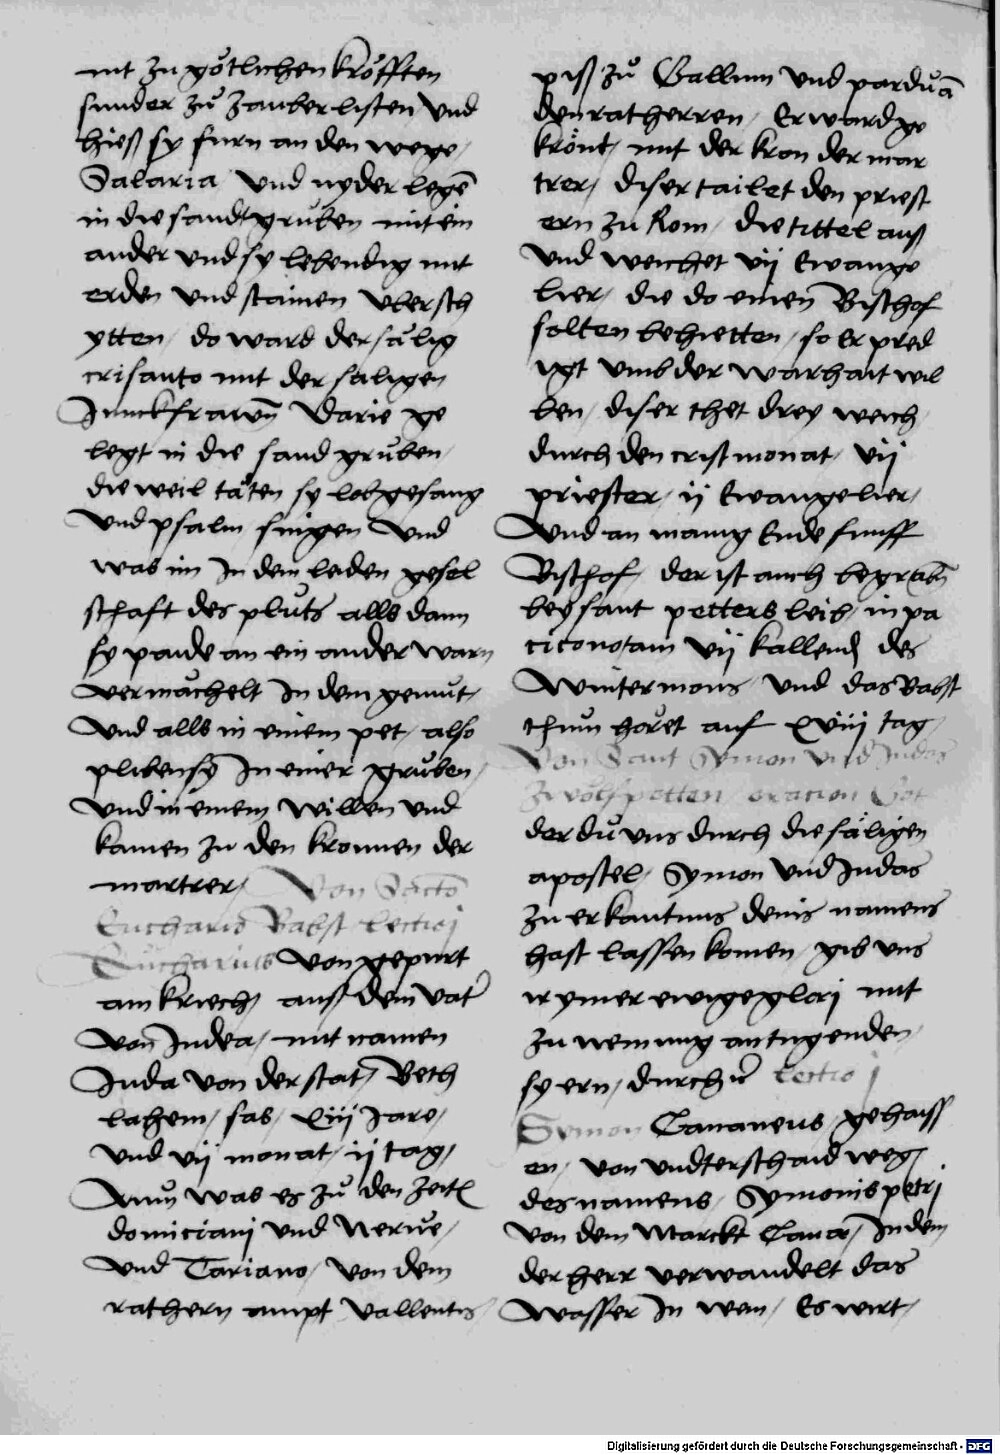 nit zu götlichen kröfften
sunder zu zauberlisten und
hiess sy furn an den wege /
Salaria / und nyder legē
in die sandtgruben mit ein
ander und sy lebendig mit
erden und stainen ubersch
ytten / do ward der sälig
crisanto mit der saligen
Junckfrawn̄ Darie ge
legt in die sand gruben /
die weil täten sy lobgesang
und psalm singen und
was im In dem leiden gesel
schaft des pluts alls dann
sy paide an ein ander warn
vermächelt In dem gemut /
und alls in einem pet / also
pliben sy In einer gruben /
und in einem willen und
kamen zu den kronnen der
martrer / Von Sācto
Eucharis Babst lectio j
Eucharius von gepurt
am kriech / auss dem vat'
von Judea / mit namen
Juda von der stat / Beth
lahem / sas / xiij Jare /
und vij monat / ij tag /
Nun was es zu den zeitē
domiciani und Nerve /
und Tariano / von dem
rathern ampt vallentis /
piss zu Gallum und pardūā
den ratherren / Er ward ge
krönt / mit der kron der mar
trer / diser tailet den priest
ern zu Rom / die tittel auss
und weichet vij Ewange
lier / die do einen Bischof
solten behietten / so Er pred
igt umb der warhait wil
len / diser thet drey weich
durch den cristmonat / vij
priester / ij Ewangelier /
und an manig Ende funff
Bischof / der ist auch begrabn̄
bey sant petters leib / in va
ticonotam vij kallend des
wintermons / und das Babst
thum höret auf xviij tag /
Von Sant Symon und Judas
zwölfpotten / oracion Got
der du uns durch die säligen
apostel / Symon und Judas
zu erkantnus deins namens
hast lassen komen / gib uns
ir ymer ewige glori mit
zu nemung an tugenden /
sy ern / durch u' lectio j
Symon Cananeus / gehaiss
en / von undterschaid weg /
des namens / Symonis petrj
von dem Marckt Cana / In dem
der herr verwandelt das
wasser In wein / Es wirt /
Digitalisierung gefördert durch die Deutsche Forschungsgemeinschaft - DFG